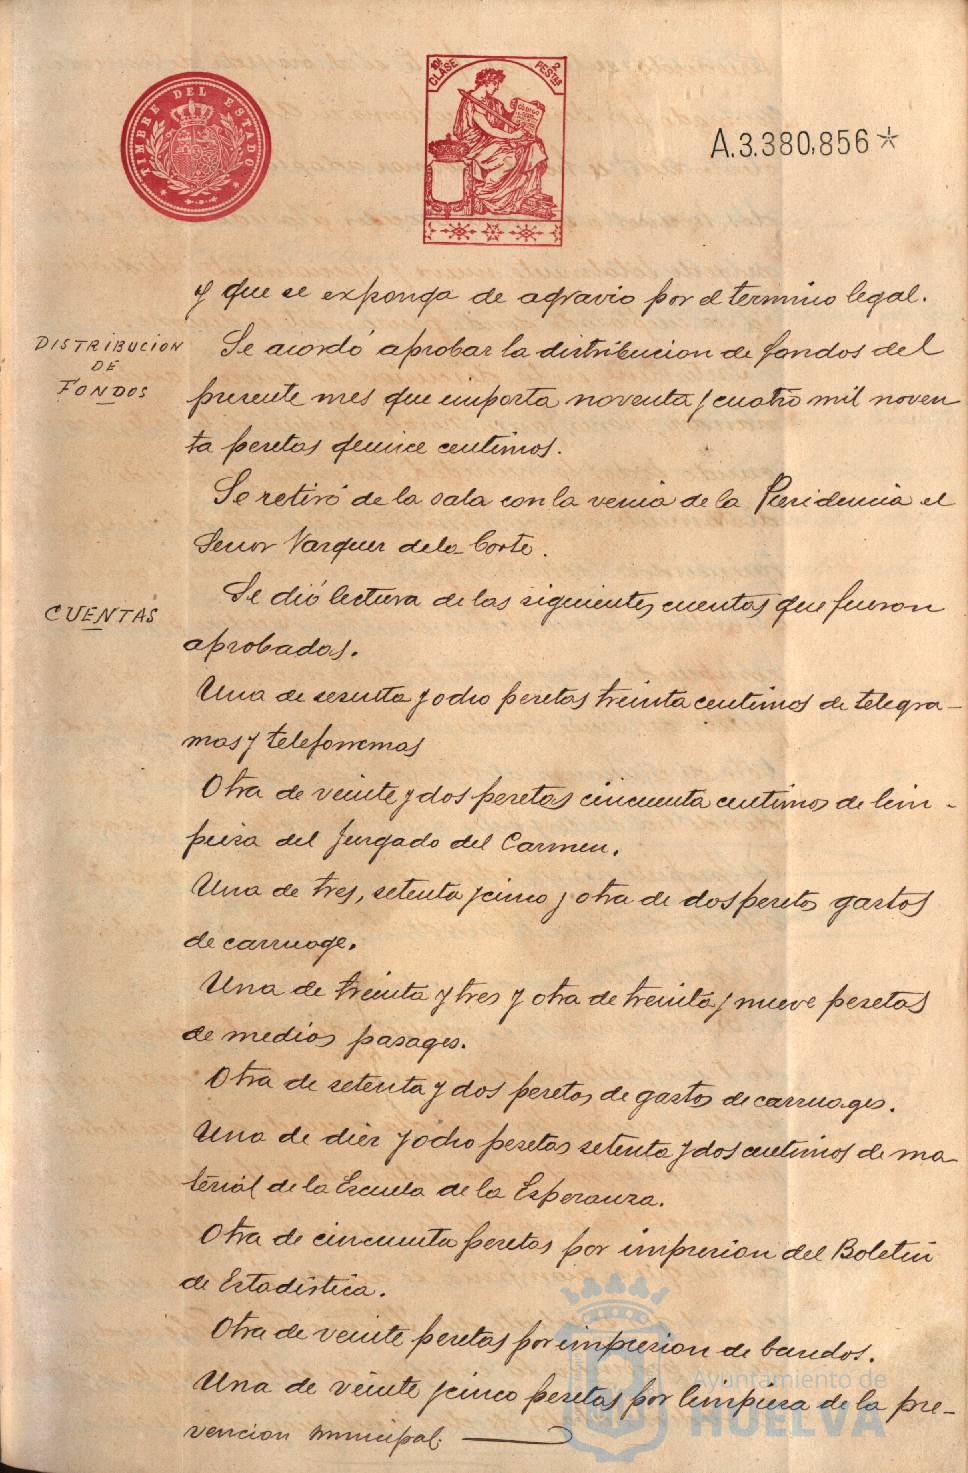 TIMBRE DEL ESTADO
10ª CLASE 2 PESTAS
A.3.380,856*
y que se exponga de agravio por el termino legal.
DISTRIBUCION DE FONDOS
Se acordó aprobar la distribucion de fondos del
presente mes que importa noventa y cuatro mil noven
ta pesetas quince centimos.
Se retiró de la sala con la venia de la Presidencia el
Señor Vazquez de la Corte.
CUENTAS
Se dió lectura de las siguientes cuentas que fueron
aprobadas.
Una de sesenta y ocho pesetas treinta centimos de telegra-
mas y telefonemas
Otra de veinte y dos pesetas cincuenta centimos de lim-
pieza del Juzgado del Carmen.
Una de tres, setenta y cinco y otra de dos pesetas gastos
de carruage.
Una de treinta y tres y otra de treinta y nueve pesetas
de medios pasages.
Otra de setenta y dos pesetas de gastos de carruages.
Una de diez y ocho pesetas setenta y dos centimos de ma
terial de la Escuela de la Esperanza.
Otra de cincuenta pesetas por impresion del Boletin
de Estadistica.
Otra de veinte pesetas por impresion de bandos.
Una de veinte y cinco pesetas por limpieza de la pre-
vencion municipal.
Ayuntamiento de
HUELVA